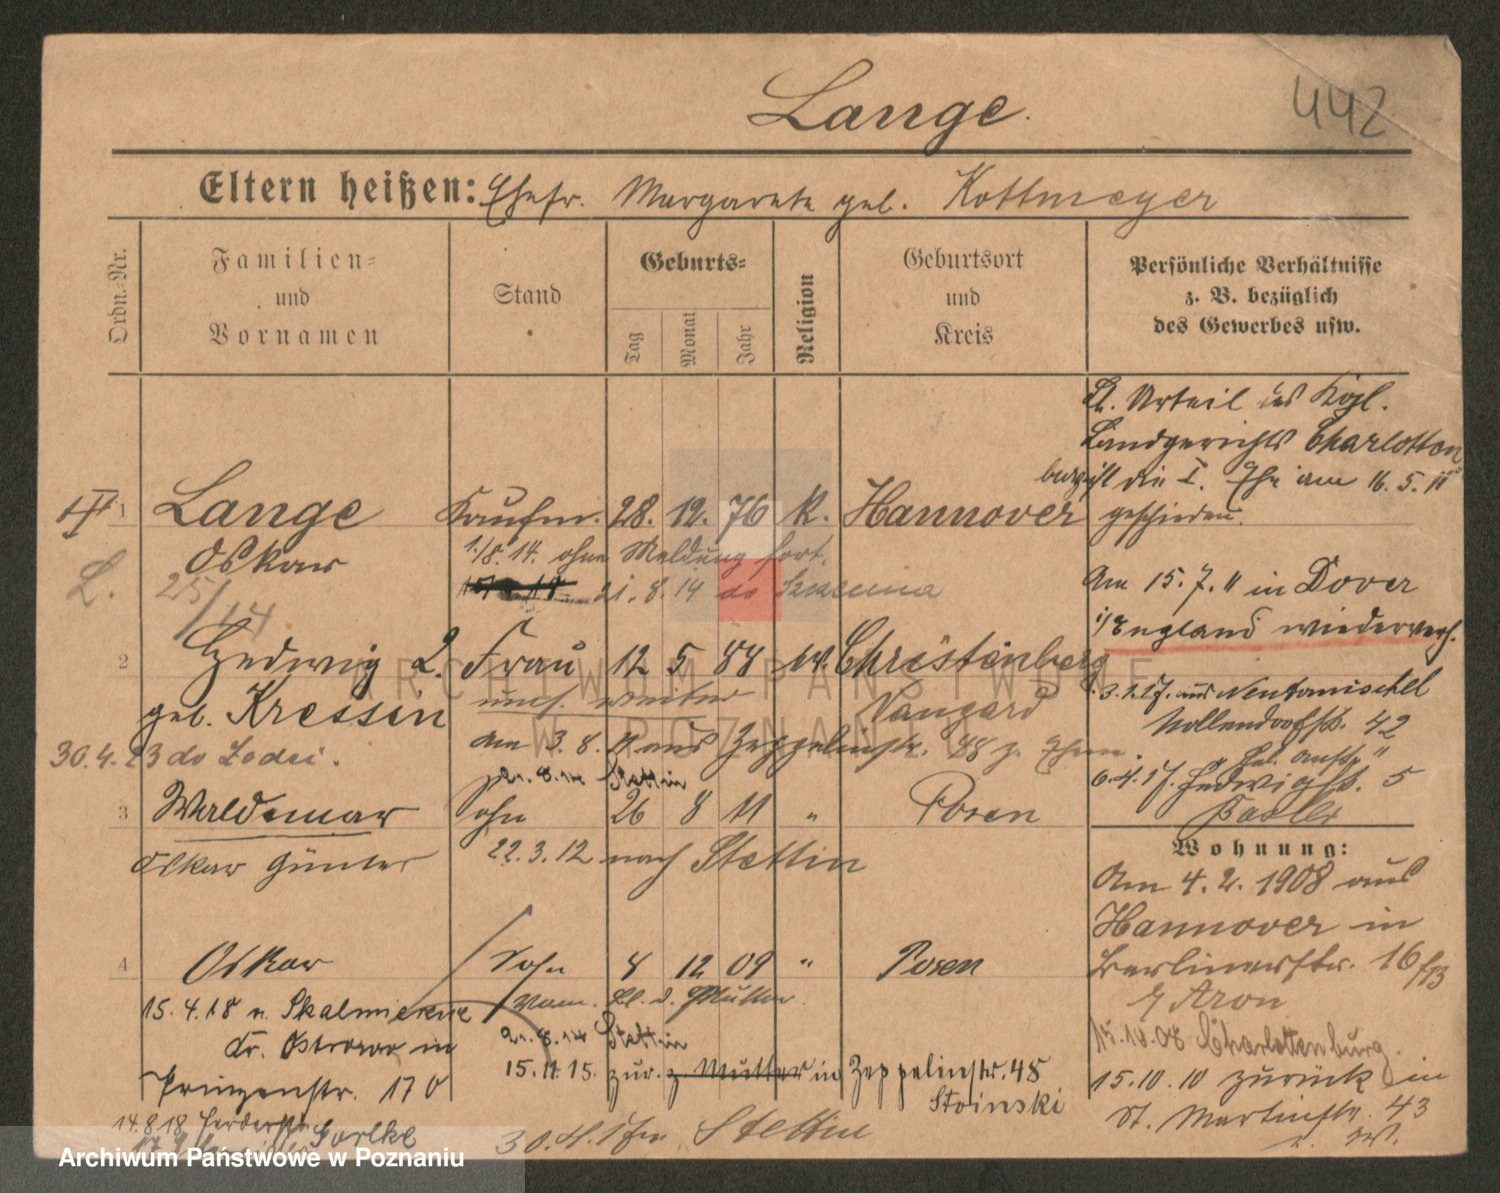 Lange.
442
Eltern heißen: Ehefr. Margarete geb. Kottmeyer
Ordn.-Nr.
Familien-
und
Vornamen
Stand
Geburts-
Tag
Monat
Jahr
Religion
Geburtsort
und
Kreis
Persönliche Verhältnisse
z. B. bezüglich
des Gewerbes usw.
Lt. Urteil des Kgl.
Landgerichts Charlotten
burg ist die I. Ehe am 16. 5. 11
geschieden.
1 Lange Kaufm. 28. 12. 76 k. Hannover
Oskar
1./8. 14. ohne Meldung fort.
21. 8. 14
L. 25/14
Am 15. 7. 11 in Dover
i/England wiederverh.
2 Hedwig 2. Frau 12 5 88 ev. Christinenberg
geb. Kressin
weiter
Naugard
3. 1. 17. aus Neutomischel
Nollendorfstr. 42
Am 3. 8. 11 aus Zeppelinstr. 28 z. Ehem.
30. 4. 23 do Lodzi.
21. 8. 14 Stettin
6. 4. 17. Hedwigstr. 5
3 Waldemar Sohn 26 8 11 " Posen
Oskar Günter
22. 3. 12 nach Stettin
Wohnung:
Am 4. 2. 1908 aus
Hannover in
Berlinerstr. 16
b/ Aron
4 Oskar Sohn 8 12 09 " Posen
15. 4. 18 n. Skalmierzyce
Kr. Ostrowo in
Prinzenstr. 17
21. 8. 14 Stettin
15. 11. 15. zur. z. Mutter in Zeppelinstr. 48
Stoinski
15. 10. 08 Charlottenburg.
15. 10. 10 zurück in
St. Martinstr. 43
14. 8. 18
30. 4. 17 Stettin
ARCHIWUM PAŃSTWOWE
W POZNANIU
Archiwum Państwowe w Poznaniu